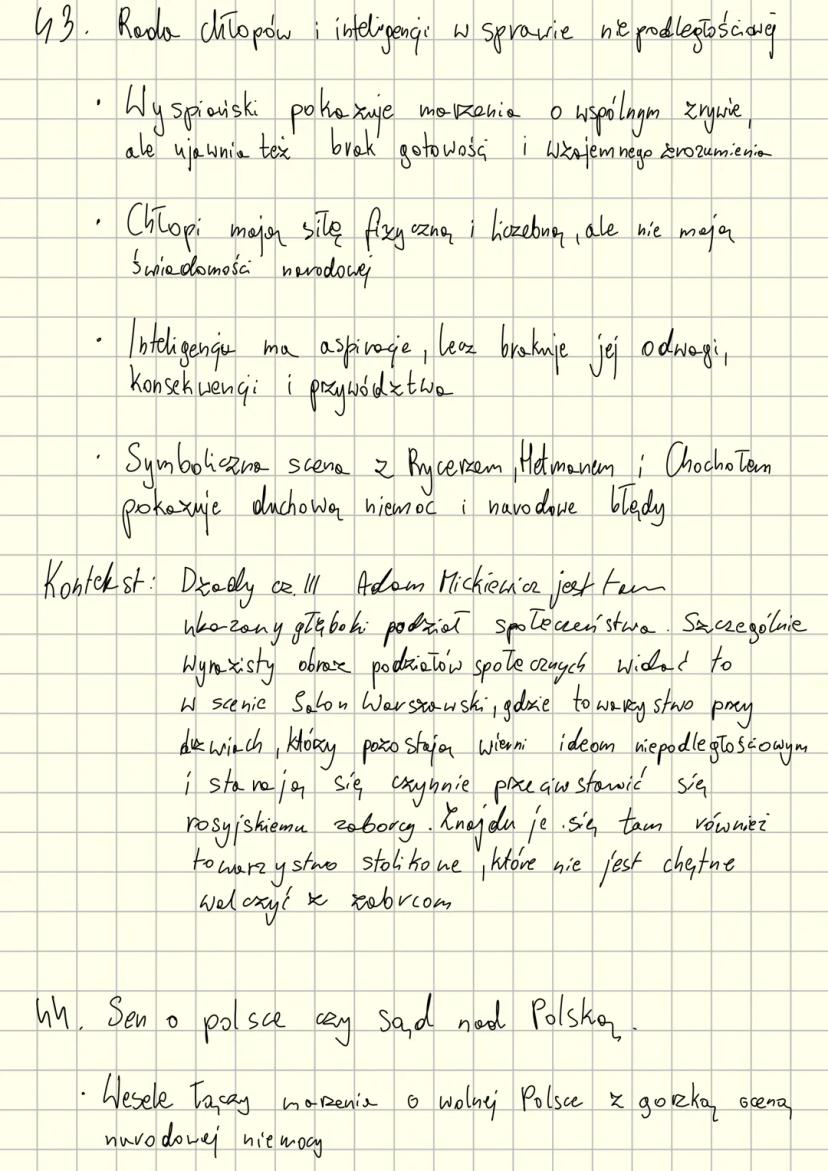 43. Rada chłopów i inteligencji w sprawie niepodległościowej
• Wyspiański pokazuje marzenia o wspólnym zrywie,
ale ujawnia też brak gotowości i wzajemnego zrozumienia
• Chłopi mają siłę fizyczną i liczebną, ale nie mają
świadomości narodowej
• Inteligencja ma aspiracje, lecz brakuje jej odwagi,
konsekwencji i przywództwa
• Symboliczna scena z Rycerzem, Hetmanem i Chochołem
pokazuje duchową niemoc i narodowe błędy
Kontekst: Dziady cz. III Adam Mickiewicz jest tam
ukazany głęboki podział społeczeństwa. Szczególnie
wyrazisty obraz podziałów społecznych widać to
w scenie Salon Warszawski, gdzie towarzystwo przy
drzwiach, którzy pozostają wierni ideom niepodległościowym
i starają się czynnie przeciwstawić się
rosyjskiemu zaborcy. Znajduje się tam również
towarzystwo stolikowe, które nie jest chętne
walczyć z zaborcom
44. Sen o polsce czy sąd nad Polską.
• Wesele łączy marzenia o wolnej Polsce z gorzką oceną
narodowej niemocy